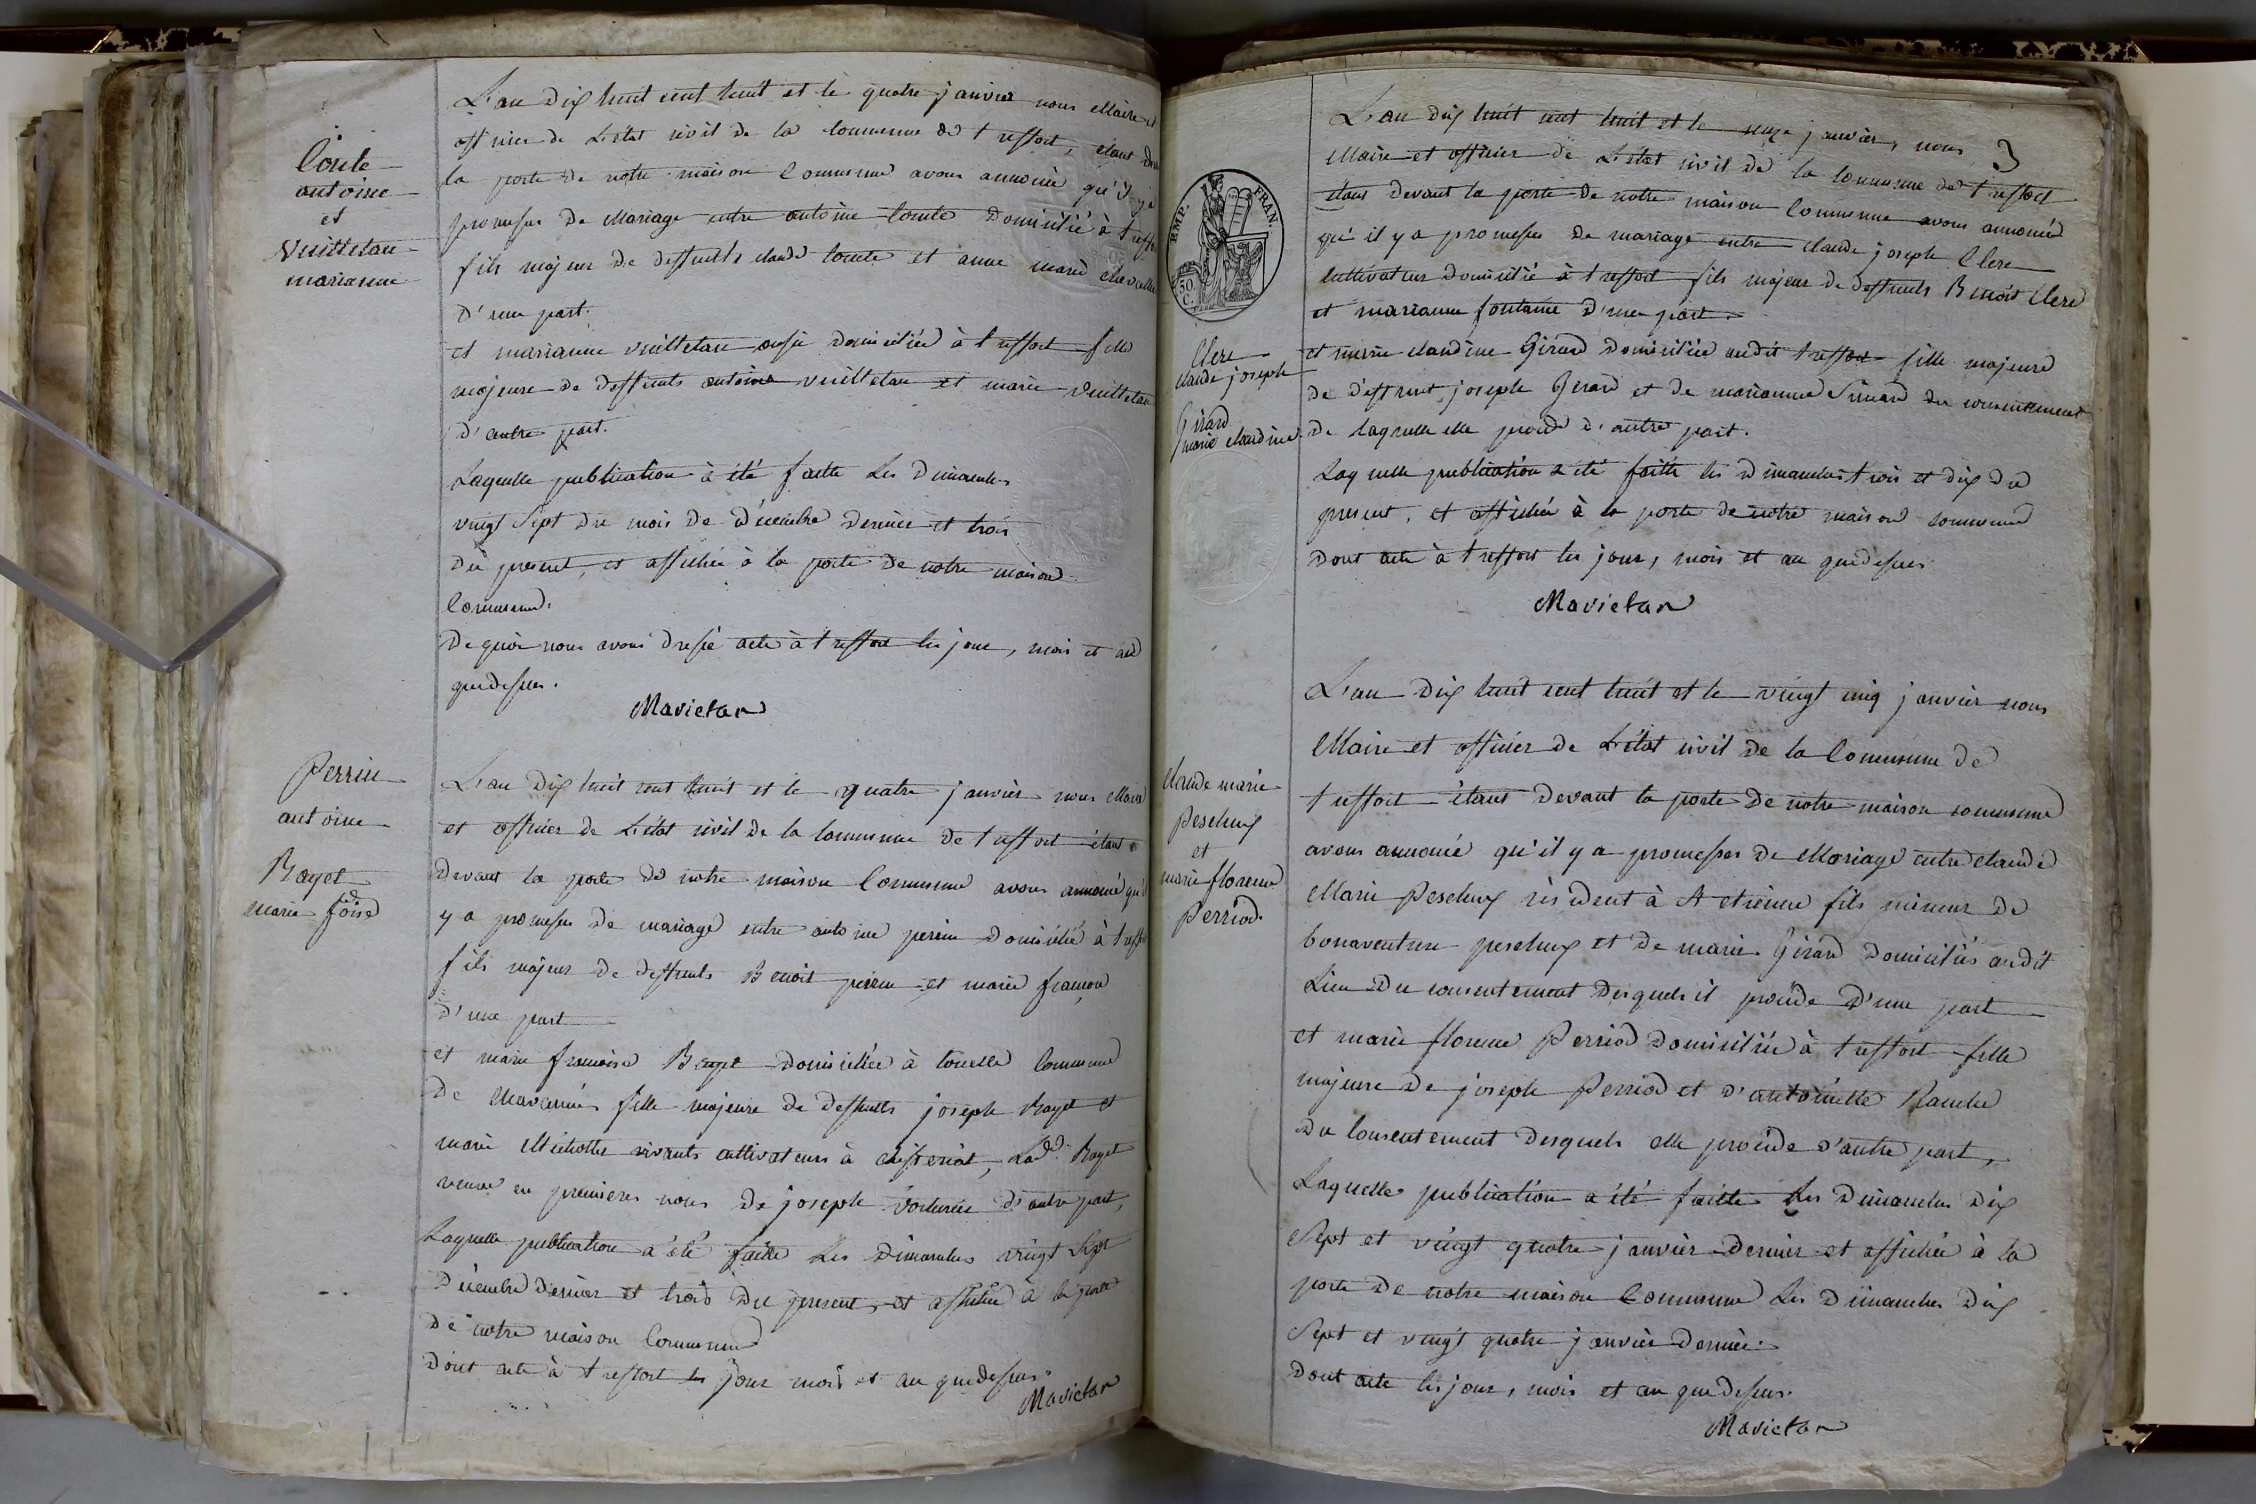 Conte
antoine
et
Vuilletan
marianne
L'an dix huit cent huit et le quatre janvier nous Maire et
officier de L'etat civil de la Commune de treffort, étant
la porte de notre maison Commune avons annoncé qu'il y a
promesses de Mariage entre antoine Comte Domicilié à treffort
fils majeur de deffunts claude Comte et anne marie
D'une part.
et marianne vuilletan aussi domiciliée à treffort fille
majeure de deffunts antoine vuilletan et marie Vuilletan
D'autre part.
Laquelle publication à été faitte Les Dimanches
vingt Sept du mois de décembre dernier et trois
Du present, et affichée à la porte de notre maison
Commune.
De quoi nous avons dressé acte à treffort les jour, mois et an
que dessus.
Mavietan
Perrin
antoine
Bayet
Marie foise
L'an dix huit cent huit et le quatre janvier nous Maire
et officier de L'état civil de la Commune de treffort étant
devant la porte de notre maison Commune avons annoncé qu'il
y a promesses de mariage entre antoine perrin Domicilié à treffort
fils majeur de deffunts Benoit perrin et marie françon
d'une part
et marie francoise Bayet domiciliée à Commune
De fille majeure de deffunts joseph Bayet et
marie vivants cultivateurs à Lad. Bayet
veuve en premieres noces de joseph d'autre part,
Laquelle publication a été faitte Les Dimanches vingt Sept
Décembre dernier et trois du present, et affichée à la porte
de notre maison Commune
Dont acte à treffort les jour mois et an que dessus.
Mavietan
3
EMP. FRAN.
50. C.
L'an dix huit cent huit et le onze janvier, nous
Maire et officier de L'état civil de la Commune de treffort
étant devant la porte de notre maison Commune avons annoncé
qu'il y a promesses de mariage entre claude joseph Clerc
cultivateur domicilié à treffort fils majeur de deffunts Benoit Clerc
et marianne fontaine D'une part.
Clerc
claude joseph
Girard
marie claudine
et marie claudine Girard domiciliée audit treffort fille majeure
de deffunt joseph Girard et de marianne Simard du consentement
De laquelle elle procede d'autre part.
Laquelle publication a été faitte les dimanches trois et dix du
present, et affichée à la porte de notre maison commune
Dont acte à treffort les jour, mois et an que dessus
Mavietan
Claude marie
Pescheux
et
marie florence
Perriod
L'an dix huit cent huit et le vingt cinq janvier nous
Maire et officier de L'état civil de la Commune de
treffort étant devant la porte de notre maison commune
avons annoncé qu'il y a promesses de Mariage entre claude
Marie Pescheux résident à St etienne fils mineur de
bonaventure pescheux et de marie Girard domiciliés audit
Lieu Du consentement desquels il procede D'une part
et marie florence Perriod domiciliée à treffort fille
majeure de joseph Perriod et d'antoinette
Du Consentement desquels elle procede d'autre part,
Laquelle publication a été faitte Les Dimanches Dix
Sept et vingt quatre janvier dernier et affichée à la
porte de notre maison Commune Les Dimanches Dix
Sept et vingt quatre janvier dernier.
Dont acte les jour, mois et an que dessus.
Mavietan